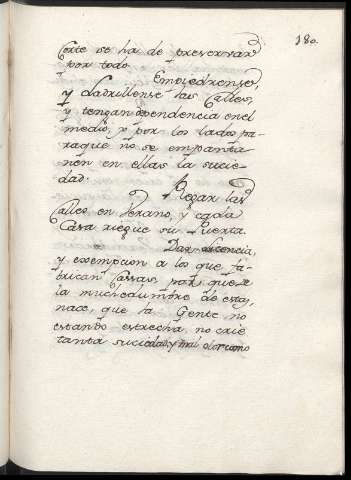 180.
Corte se ha de preservar
por todo.
Empiedrense,
y ladrillense las Calles,
y tengan dependencia en el
medio, y por los lados pa-
raque no se empanta
nen en ellas la sucie-
dad.
Regar las
Calles en Verano, y cada
Casa riegue su Puerta.
Dar licencia,
y exempcion a los que fa-
brican Casas, porque de
la muchedumbre de estas
nace, que la Gente no
estando estrecha, no crie
tanta suciedad, y mal olor como